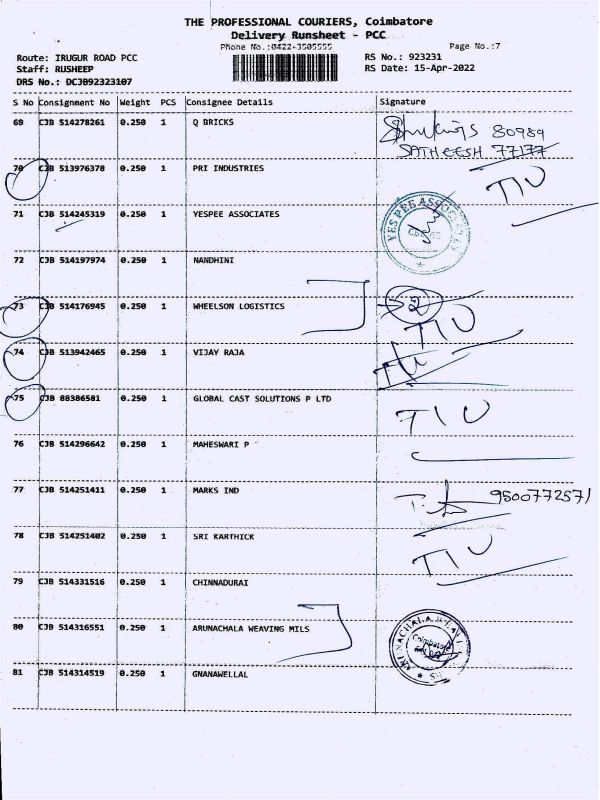 THE PROFESSIONAL COURIERS, Coimbatore
Delivery Runsheet - PCC
Phone No.:0422-3505555
Page No.:7
Route: IRUGUR ROAD PCC
RS No.: 923231
Staff: RUSHEEP
RS Date: 15-Apr-2022
DRS No.: DCJB92323107
S No Consignment No Weight PCS Consignee Details Signature
69 CJB 514278261 0.250 1 Q BRICKS
80989
SATHEESH 77177
70 CJB 513976378 0.250 1 PRI INDUSTRIES
TIU
71 CJB 514245319 0.250 1 YESPEE ASSOCIATES
YES PEE ASSOCIATES
72 CJB 514197974 0.250 1 NANDHINI
73 CJB 514176945 0.250 1 WHEELSON LOGISTICS 2
TIU
74 CJB 513942465 0.250 1 VIJAY RAJA
TIU
75 CJB 88386581 0.250 1 GLOBAL CAST SOLUTIONS P LTD
TIU
76 CJB 514296642 0.250 1 MAHESWARI P
77 CJB 514251411 0.250 1 MARKS IND 9500772571
78 CJB 514251402 0.250 1 SRI KARTHICK
TIU
79 CJB 514331516 0.250 1 CHINNADURAI
80 CJB 514316551 0.250 1 ARUNACHALA WEAVING MILS
ARUNACHALA
Coimbatore
81 CJB 514314519 0.250 1 GNANAWELLAL